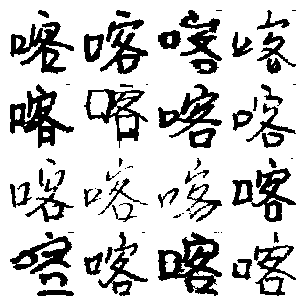 喀喀喀喀
喀喀喀喀
喀喀喀喀
喀喀喀喀